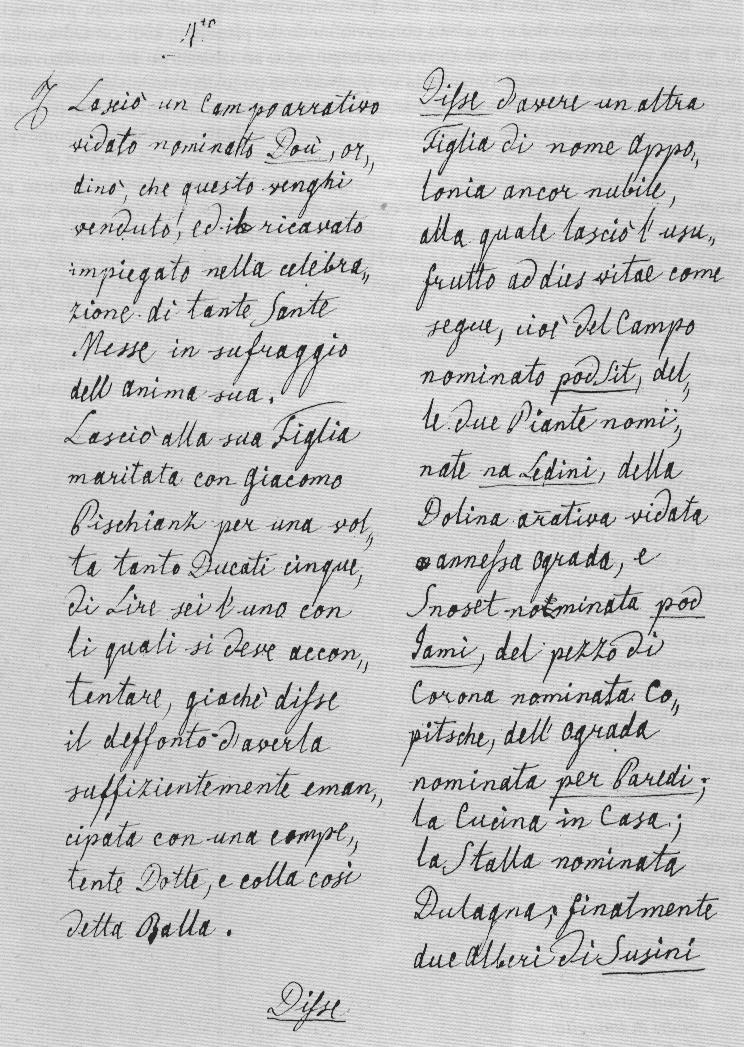 4to
Lasciò un Campo arrativo
vidato nominato Dou, or„
dinò, che questo venghi
venduto, ed il ricavato
impiegato nella celebra„
zione di tante Sante
Messe in sufraggio
dell anima sua.
Lasciò alla sua Figlia
maritata con Giacomo
Pischianz per una vol„
ta tanto Ducati cinque,
di Lire sei l'uno con
li quali si deve accon„
tentare, giachè disse
il deffonto d'averla
suffizientemente eman„
cipata con una compe„
tente Dotte, e colla così
detta Balla.
Disse
Disse d'avere un altra
Figlia di nome Appo„
lonia ancor nubile,
alla quale lasciò l'usu„
frutto ad dies vitae come
segue, cioè del Campo
nominato pod Sit, del„
le due Piante nomi„
nate na Ledini, della
Dolina arativa vidata
annessa Ograda, e
Snoset nominata pod
Jami, del pezzo di
Corona nominata Co„
pitsche, dell' Ograda
nominata per Paredi;
la Cucina in Casa;
la Stalla nominata
Dulagna; finalmente
due alberi di Susini